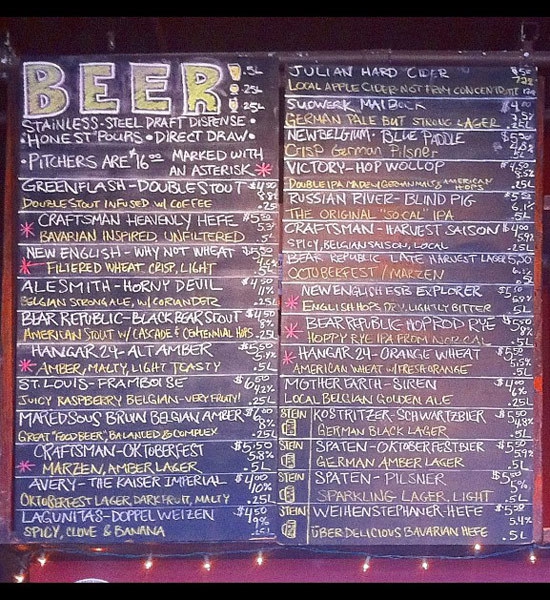 BEER
.5L
.25L
.25L
STAINLESS-STEEL DRAFT DISPENSE •
• HONEST POURS • DIRECT DRAW •
• PITCHERS ARE $16.00 MARKED WITH
AN ASTERISK *
GREENFLASH-DOUBLE STOUT $4.50
DOUBLE STOUT INFUSED W/ COFFEE
CRAFTSMAN HEAVENLY HEFE
* BAVARIAN INSPIRED, UNFILTERED
NEW ENGLISH - WHY NOT WHEAT
* FILTERED WHEAT CRISP, LIGHT .5L
ALESMITH-HORNY DEVIL $4.50 11%
BELGIAN STRONG ALE, W/ CORIANDER .25L
BEAR REPUBLIC-BLACK BEAR STOUT $4.50 8%
AMERICAN STOUT W/ CASCADE & CENTENNIAL HOPS .25L
HANGAR 24-ALT AMBER $5.50
* AMBER, MALTY, LIGHT TOASTY .5L
ST. LOUIS-FRAMBOISE $6.00
JUICY RASPBERRY BELGIAN-VERY FRUITY! .25L
MAREDSOUS BRUIN BELGIAN AMBER $6.00 8%
GREAT "FOOD BEER", BALANCED & COMPLEX .25L
CRAFTSMAN-OKTOBERFEST $5.50 5.8%
* MARZEN, AMBER LAGER .5L
AVERY-THE KAISER IMPERIAL $4.00 10%
OKTOBERFEST LAGER, DARK FRUIT, MALTY .25L
LAGUNITAS-DOPPEL WEIZEN $4.50 9%
SPICY, CLOVE & BANANA
JULIAN HARD CIDER
LOCAL APPLE CIDER-NOT FROM CONCENTRATE
SUDWERK MAIBOCK
GERMAN PALE BUT STRONG LAGER
NEW BELGIUM-BLUE PADDLE
CRISP German Pilsner
VICTORY-HOP WOLLOP
DOUBLE IPA MADE W/ GERMAN MALTS & AMERICAN HOPS .25L
RUSSIAN RIVER-BLIND PIG
THE ORIGINAL "SO CAL" IPA .5L
CRAFTSMAN-HARVEST SAISON
SPICY, BELGIAN SAISON, LOCAL .25L
BEAR REPUBLIC LATE HARVEST LAGER 5.50
OCTOBERFEST / MARZEN
NEW ENGLISH ESB EXPLORER
* ENGLISH HOPS DRY, LIGHTLY BITTER .5L
* BEAR REPUBLIC-HOPROD RYE
HOPPY RYE IPA FROM NOR CAL
* HANGAR 24-ORANGE WHEAT
AMERICAN WHEAT W/ FRESH ORANGE .5L
MOTHER EARTH-SIREN $4.00
LOCAL BELGIAN GOLDEN ALE .25L
STEIN KÖSTRITZER-SCHWARTZBIER $5.50 4.8%
GERMAN BLACK LAGER .5L
STEIN SPATEN-OKTOBERFESTBIER $5.50 5.9%
GERMAN AMBER LAGER .5L
STEIN SPATEN-PILSNER
SPARKLING LAGER, LIGHT .5L
STEIN WEIHENSTEPHANER-HEFE 5.4%
ÜBER DELICIOUS BAVARIAN HEFE .5L